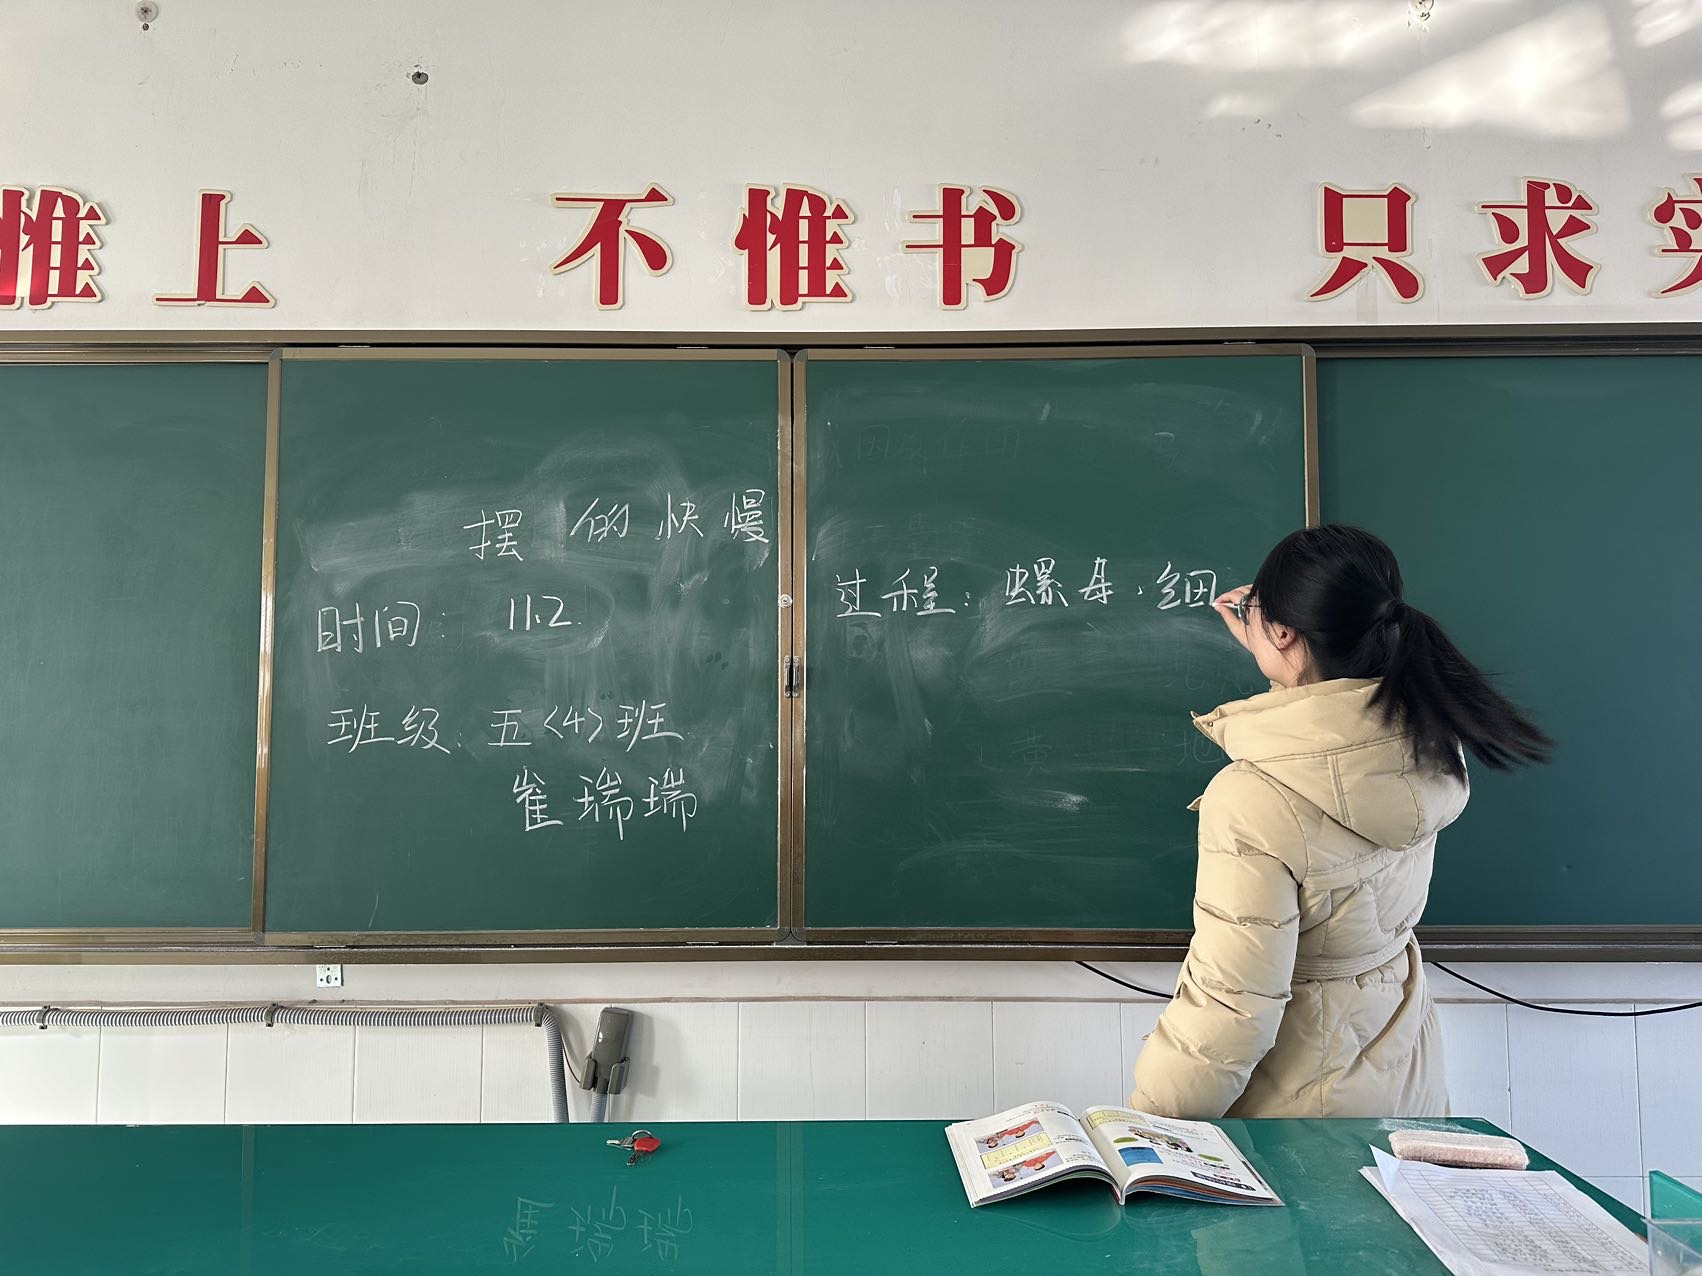 惟上 不惟书 只求实
摆的快慢
时间: 11.2.
班级: 五<4>班
崔瑞瑞
过程: 螺母、细